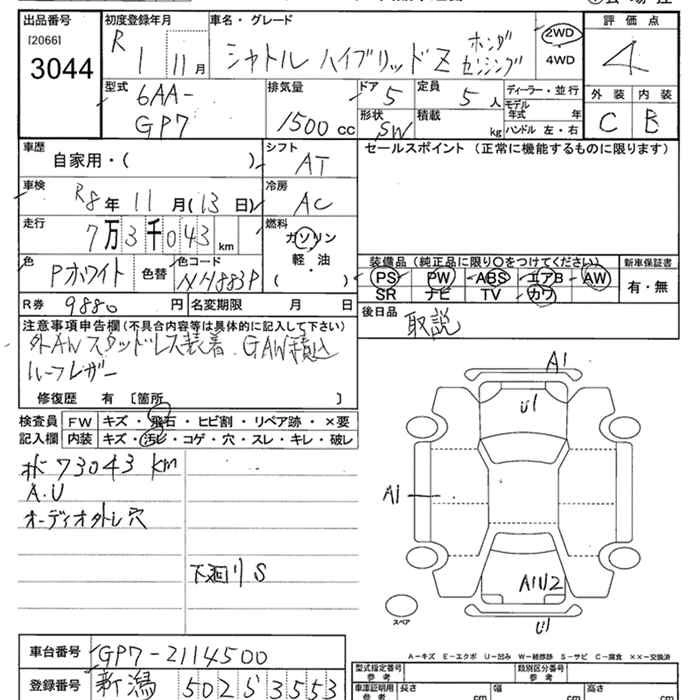 出品番号 初度登録年月 車名・グレード 評価点
[2066]
3044
R 1 11月 シャトル ハイブリッドZ ホンダセンシング 2WD 4
4WD
型式 排気量 ドア 定員 ディーラー・並行 外装 内装
6AA-
GP7
1500cc
5
5人
モデル年式 年
形状 積載
SW kg ハンドル 左・右 C B
車歴 シフト セールスポイント (正常に機能するものに限ります)
自家用・( ) AT
車検 冷房
R8年 11月(13日) AC
走行 燃料
7万3千043km ガソリン
軽・油
( )
装備品(純正品に限り○をつけてください) 新車保証書
色 色替 色コード
Pホワイト NH883P
PS PW ABS エアB AW 有・無
SR ナビ TV カワ
R券 9880円 名変期限 月 日
後日品 取説
注意事項申告欄(不具合内容等は具体的に記入して下さい)
外AWスタッドレス装着.GAW積込
ルーフレザー
修復歴 有 [箇所 ]
検査員 FW キズ・飛石・ヒビ割・リペア跡・×要
記入欄 内装 キズ・汚れ・コゲ・穴・スレ・キレ・破レ
73043km
A.U
オーディオ外し穴
下廻りS
A1
U1
A1
A1U2
U1
スペア
A-キズ E-エクボ U-凹み W-補修跡 S-サビ C-腐食 ××-交換済
車台番号 GP7-2114500
登録番号 新潟 502 さ 3553
型式指定番号 参考 類別区分番号 参考
車庫証明用 参考 長さ cm 幅 cm 高さ cm